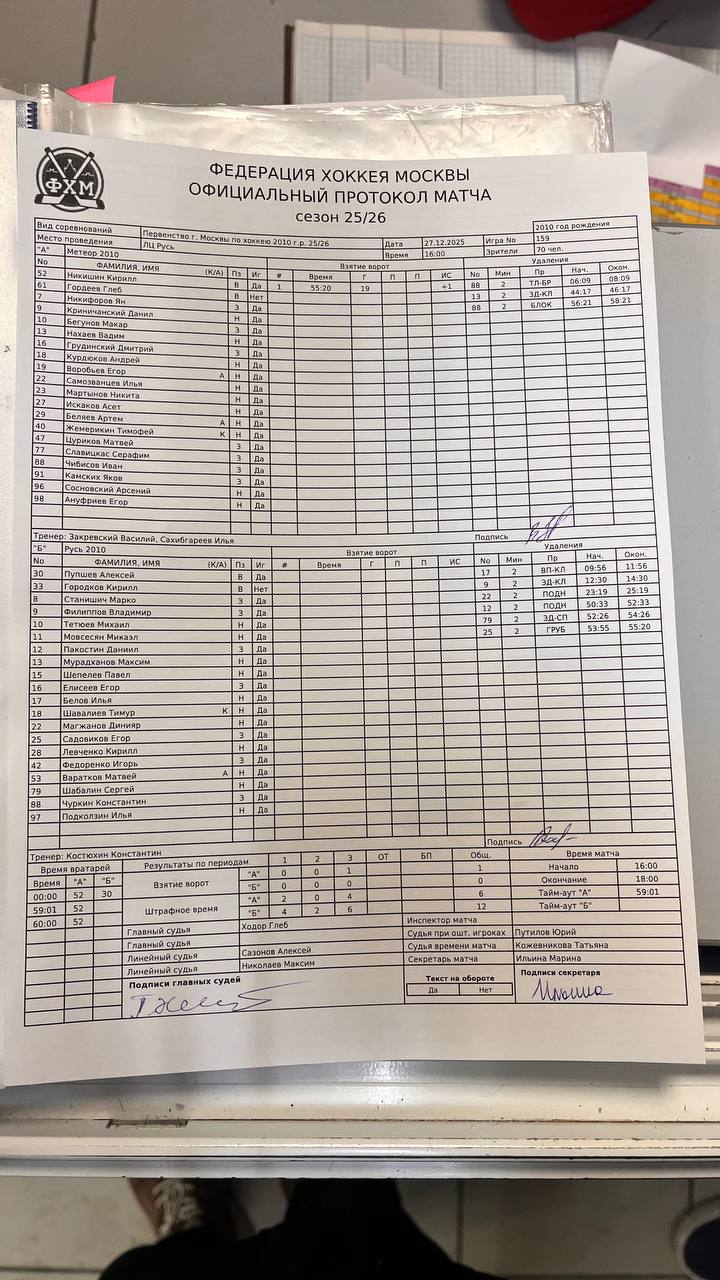 ФХМ
ФЕДЕРАЦИЯ ХОККЕЯ МОСКВЫ
ОФИЦИАЛЬНЫЙ ПРОТОКОЛ МАТЧА
сезон 25/26
Вид соревнований Первенство г. Москвы по хоккею 2010 г.р. 25/26 2010 год рождения
Место проведения ЛЦ Русь Дата 27.12.2025 Игра No 159
"А" Метеор 2010 Время 16:00 Зрители 70 чел.
Взятие ворот Удаления
No ФАМИЛИЯ, ИМЯ (К/А) Пз Иг # Время Г П П ИС No Мин Пр Нач. Окон.
52 Никишин Кирилл В Да 1 55:20 19 +1 88 2 ТЛ-БР 06:09 08:09
61 Гордеев Глеб В Нет 13 2 ЗД-КЛ 44:17 46:17
7 Никифоров Ян З Да 88 2 БЛОК 56:21 58:21
9 Криничанский Данил Н Да
10 Бегунов Макар З Да
13 Нахаев Вадим Н Да
16 Грудинский Дмитрий З Да
18 Курдюков Андрей Н Да
19 Воробьев Егор А Н Да
22 Самозванцев Илья Н Да
23 Мартынов Никита Н Да
27 Искаков Асет Н Да
29 Беляев Артем А Н Да
40 Жемерикин Тимофей К Н Да
47 Цуриков Матвей З Да
77 Славицкас Серафим З Да
88 Чибисов Иван З Да
91 Камских Яков З Да
96 Сосновский Арсений Н Да
98 Ануфриев Егор Н Да
Тренер: Закревский Василий, Сахибгареев Илья Подпись
"Б" Русь 2010 Взятие ворот Удаления
No ФАМИЛИЯ, ИМЯ (К/А) Пз Иг # Время Г П П ИС No Мин Пр Нач. Окон.
30 Пупшев Алексей В Да 17 2 ВП-КЛ 09:56 11:56
33 Городков Кирилл В Нет 9 2 ЗД-КЛ 12:30 14:30
8 Станишич Марко З Да 22 2 ПОДН 23:19 25:19
9 Филиппов Владимир З Да 12 2 ПОДН 50:33 52:33
10 Тетюев Михаил Н Да 79 2 ЗД-СП 52:26 54:26
11 Мовсесян Микаэл Н Да 25 2 ГРУБ 53:55 55:20
12 Пакостин Даниил З Да
13 Мурадханов Максим Н Да
15 Шепелев Павел Н Да
16 Елисеев Егор З Да
17 Белов Илья Н Да
18 Шавалиев Тимур К Н Да
22 Магжанов Динияр Н Да
25 Садовиков Егор З Да
28 Левченко Кирилл Н Да
42 Федоренко Игорь З Да
53 Варатков Матвей А Н Да
79 Шабалин Сергей Н Да
88 Чуркин Константин З Да
97 Подколзин Илья Н Да
Тренер: Костюхин Константин Подпись
Время вратарей Результаты по периодам 1 2 3 ОТ БП Общ. Время матча
Время "А" "Б" Взятие ворот "А" 0 0 1 1 Начало 16:00
00:00 52 30 "Б" 0 0 0 0 Окончание 18:00
59:01 52 Штрафное время "А" 2 0 4 6 Тайм-аут "А" 59:01
60:00 52 "Б" 4 2 6 12 Тайм-аут "Б"
Главный судья Ходор Глеб Инспектор матча
Главный судья Судья при ошт. игроках Путилов Юрий
Линейный судья Сазонов Алексей Судья времени матча Кожевникова Татьяна
Линейный судья Николаев Максим Секретарь матча Ильина Марина
Подписи главных судей Текст на обороте Подписи секретаря
Да Нет Ильина